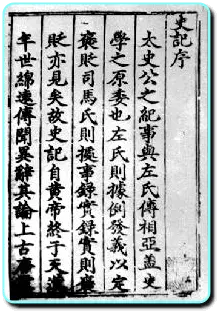 史記序
太史公之紀事與左氏傳相亞蓋史
學之原委也左氏則據例發義以定
褒貶司馬氏則摭事錄實錄實則褒
貶亦見矣故史記自黃帝終于天漢
年世綿遠傳聞異辭其論上古唐